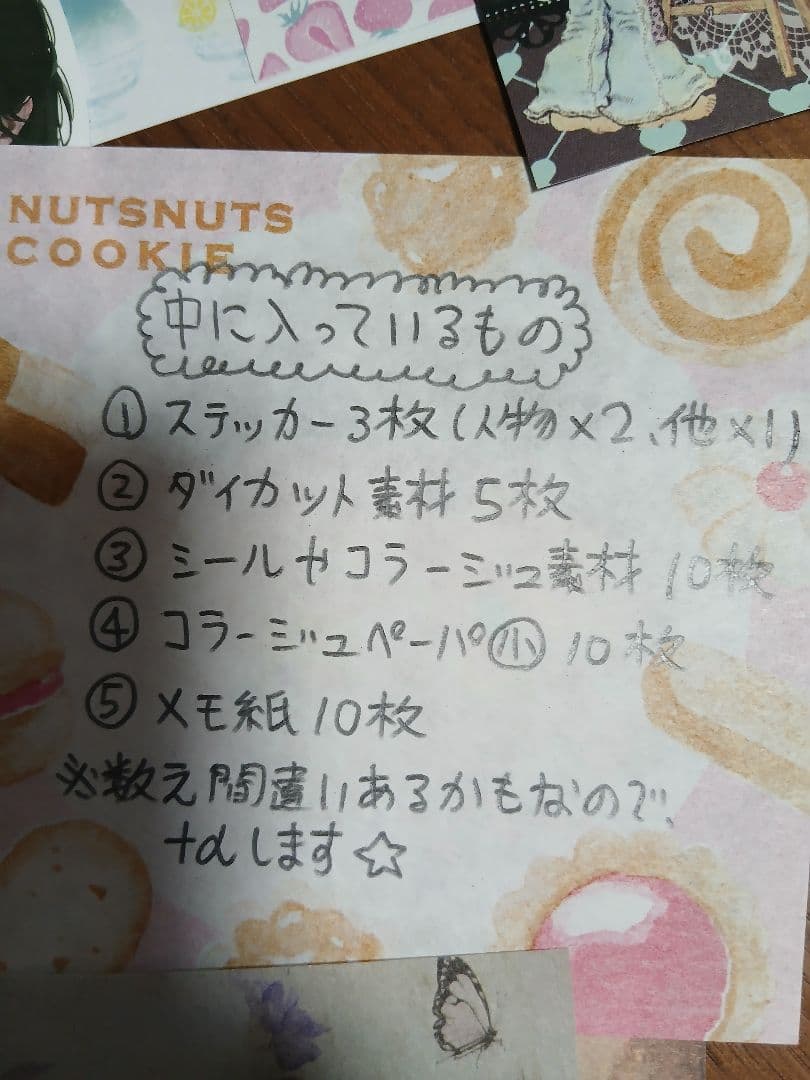 NUTSNUTS
COOKIE
中に入っているもの
① ステッカー3枚(人物×2、他×1)
② ダイカット素材 5枚
③ シールやコラージュ素材 10枚
④ コラージュペーパー㊙小 10枚
⑤ メモ紙 10枚
※数え間違いあるかもなので、
+αします☆